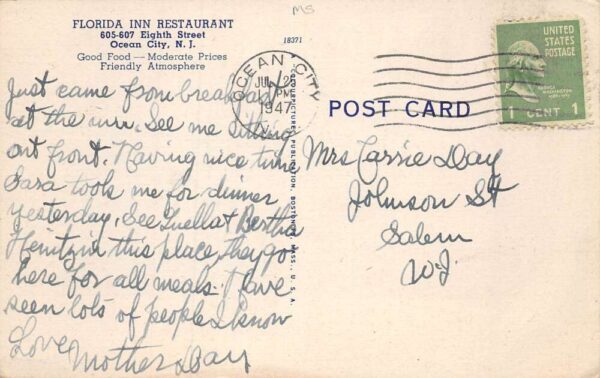 MS
FLORIDA INN RESTAURANT
605-607 Eighth Street
Ocean City, N. J.
Good Food — Moderate Prices
Friendly Atmosphere
Just came from breakfast
at the inn. See me sitting
out front. Having nice time
Sara took me for dinner
yesterday. See Luella & Bertha
in this place, they go
here for all meals. I have
seen lots of people I know
Love Mother Day
18371
OCEAN CITY
JUL 26
PM
1947
N.J.
BOSTON, MASS., U. S. A.
POST CARD
UNITED
STATES
POSTAGE
WASHINGTON
1 CENT 1
Mrs Carrie Day
Johnson St
Salem
N.J.